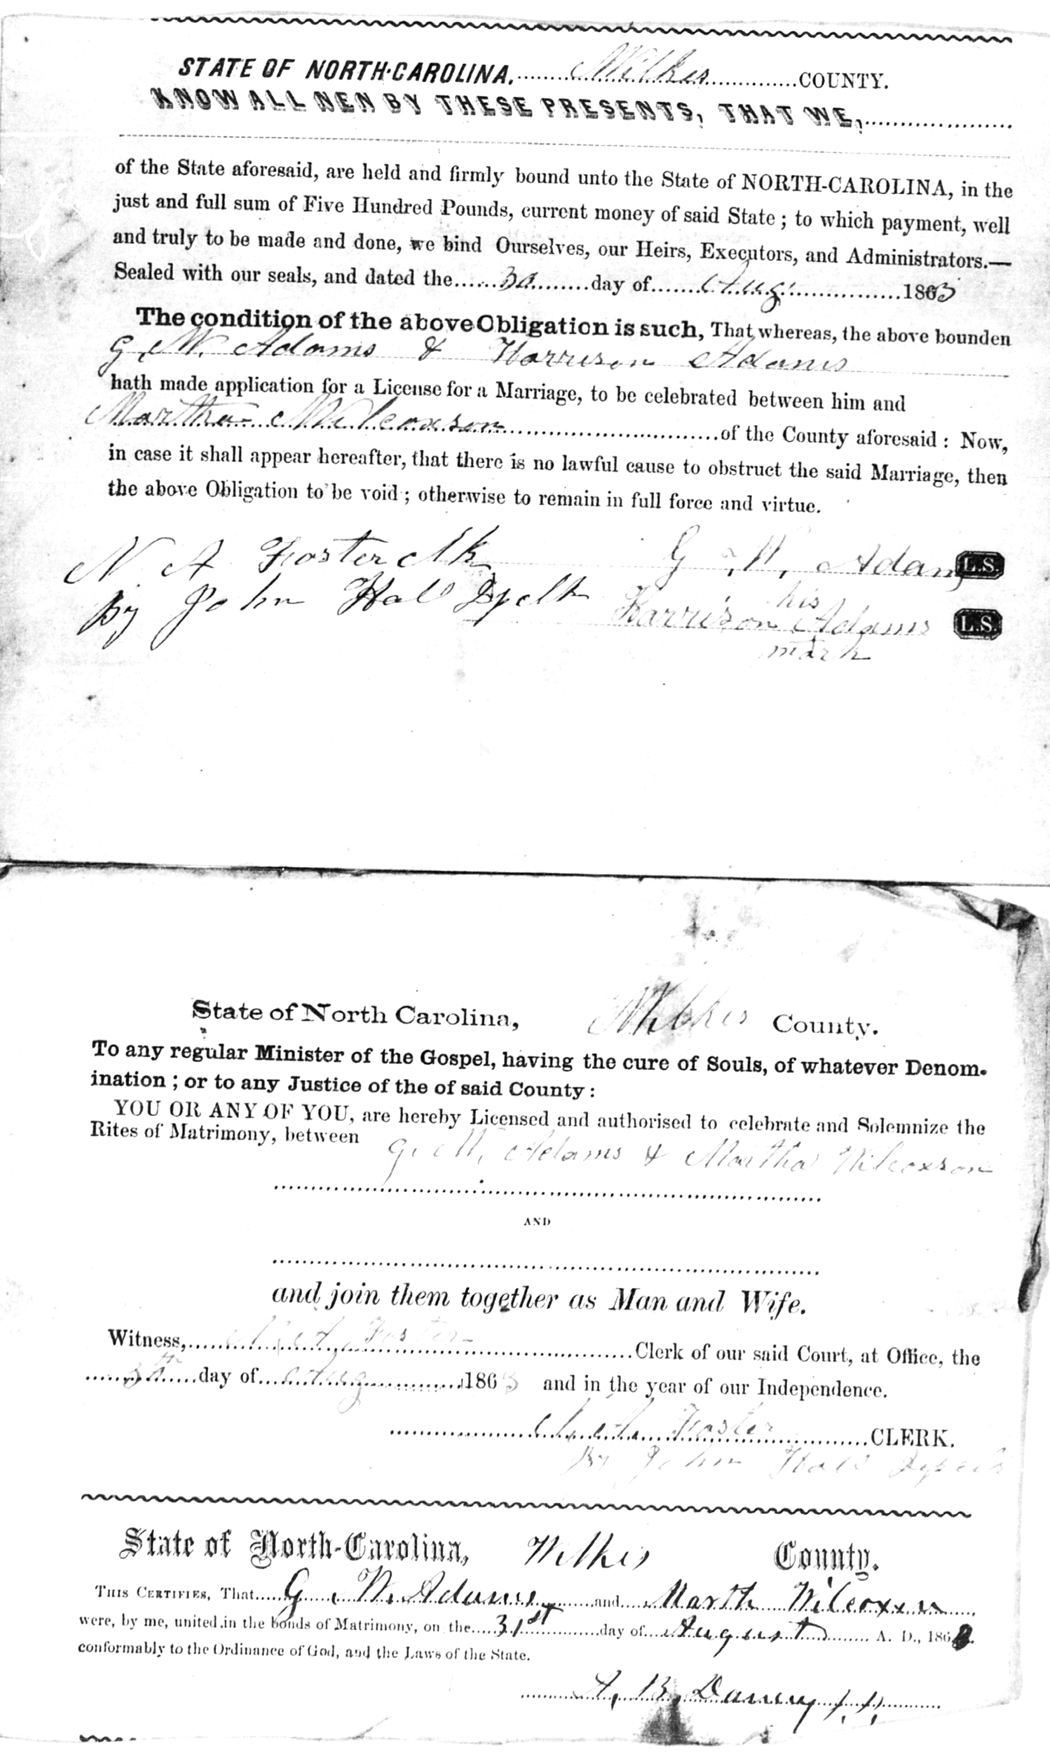 STATE OF NORTH-CAROLINA. Wilkes COUNTY.
KNOW ALL NEN BY THESE PRESENTS, THAT WE,
of the State aforesaid, are held and firmly bound unto the State of NORTH-CAROLINA, in the
just and full sum of Five Hundred Pounds, current money of said State; to which payment, well
and truly to be made and done, we bind Ourselves, our Heirs, Executors, and Administrators.—
Sealed with our seals, and dated the 30 day of Aug 1863
The condition of the above Obligation is such, That whereas, the above bounden
G. W. Adams & Harrison Adams
hath made application for a License for a Marriage, to be celebrated between him and
Martha Wilcoxson of the County aforesaid: Now,
in case it shall appear hereafter, that there is no lawful cause to obstruct the said Marriage, then
the above Obligation to be void; otherwise to remain in full force and virtue.
N A Foster Clk G. W. Adams L.S.
his
By John Hall Harrison Adams L.S.
mark
State of North Carolina, Wilkes County.
To any regular Minister of the Gospel, having the cure of Souls, of whatever Denom-
ination; or to any Justice of the of said County:
YOU OR ANY OF YOU, are hereby Licensed and authorised to celebrate and Solemnize the
Rites of Matrimony, between G. W. Adams & Martha Wilcoxson
AND
and join them together as Man and Wife.
Witness, N. A. Foster Clerk of our said Court, at Office, the
30th day of Aug 1863 and in the year of our Independence.
N. A. Foster CLERK.
By John Hall
State of North-Carolina, Wilkes County.
THIS CERTIFIES, That G. W. Adams and Marth Wilcoxson
were, by me, united in the bonds of Matrimony, on the 31st day of August A. D., 186
conformably to the Ordinance of God, and the Laws of the State.
A. B. J.P.